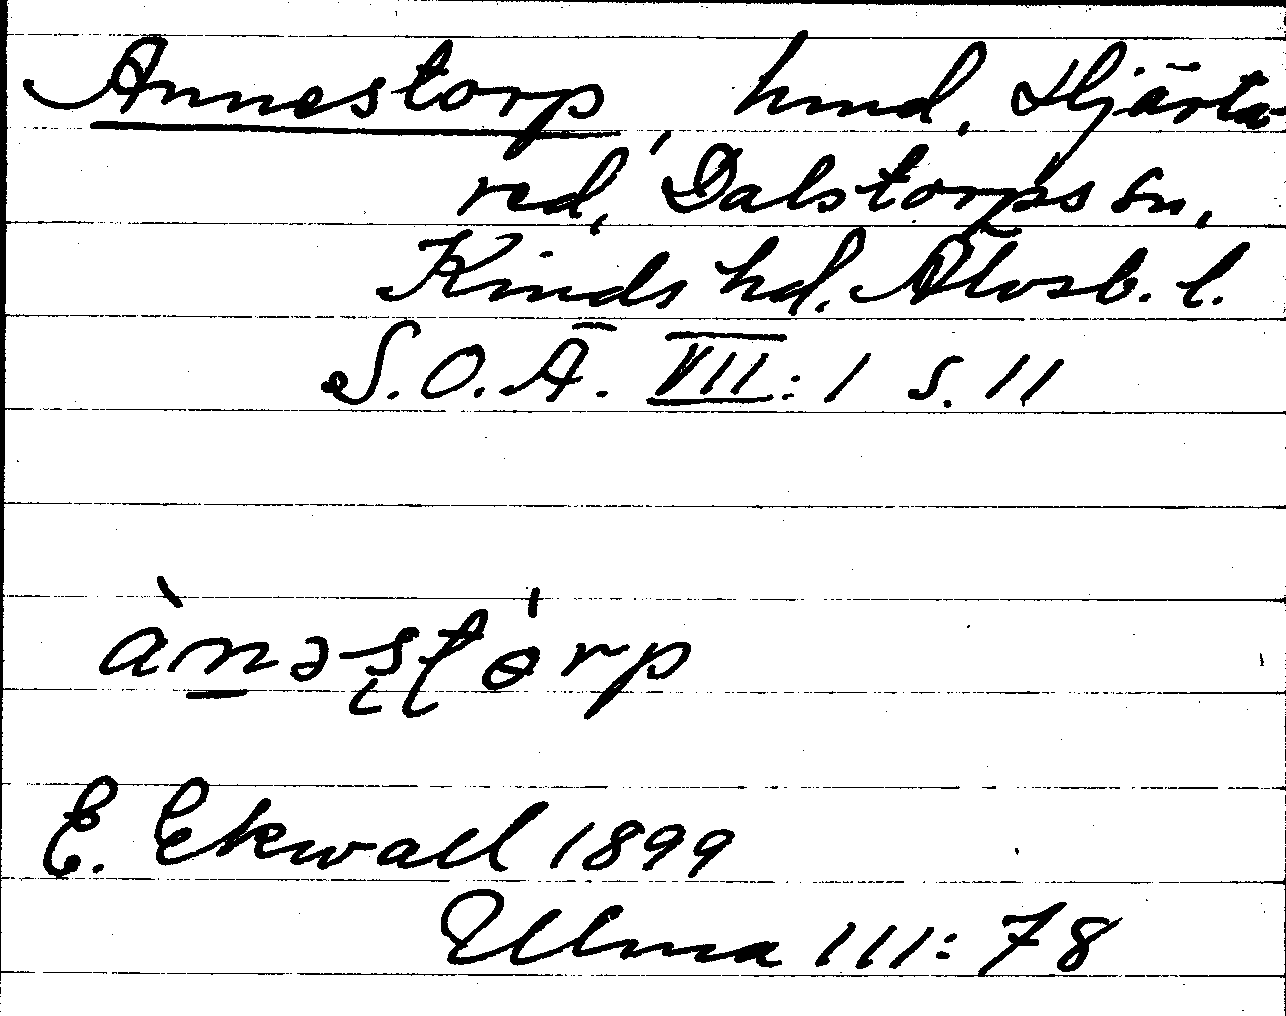 Annestorp, hmd, Hjärta-
red, Dalstorps sn,
Kinds hd. Älvsb. l.
S.O.Ä. VII:1 s. 11
ànəs̨t̨ɵ́rp
E. Ekwall 1899
Ulma 111:78